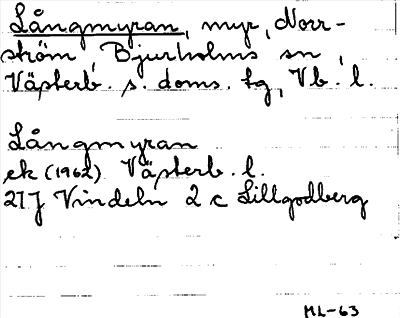 Långmyran, myr, Norr-
ström, Bjurholms sn,
Västerb. s. doms. tg, Vb. l.
Långmyran
ek (1962) Västerb. l.
21J Vindeln 2 c Lillgodberg
ML-63